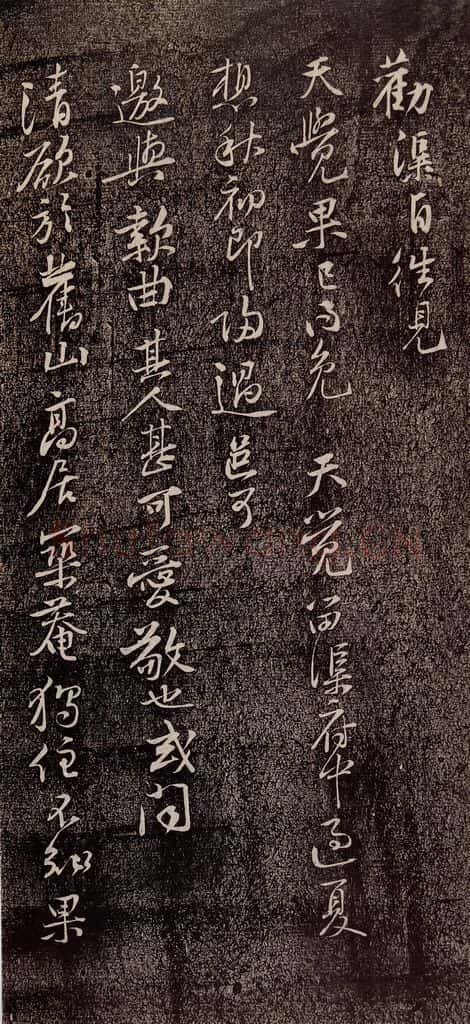 勸渠自往見
天覺果已得免　天覺留渠府中過夏
想秋初即歸過邑可
邀與款曲其人甚可愛敬也或聞
清欲於舊山高居築菴獨住不知果